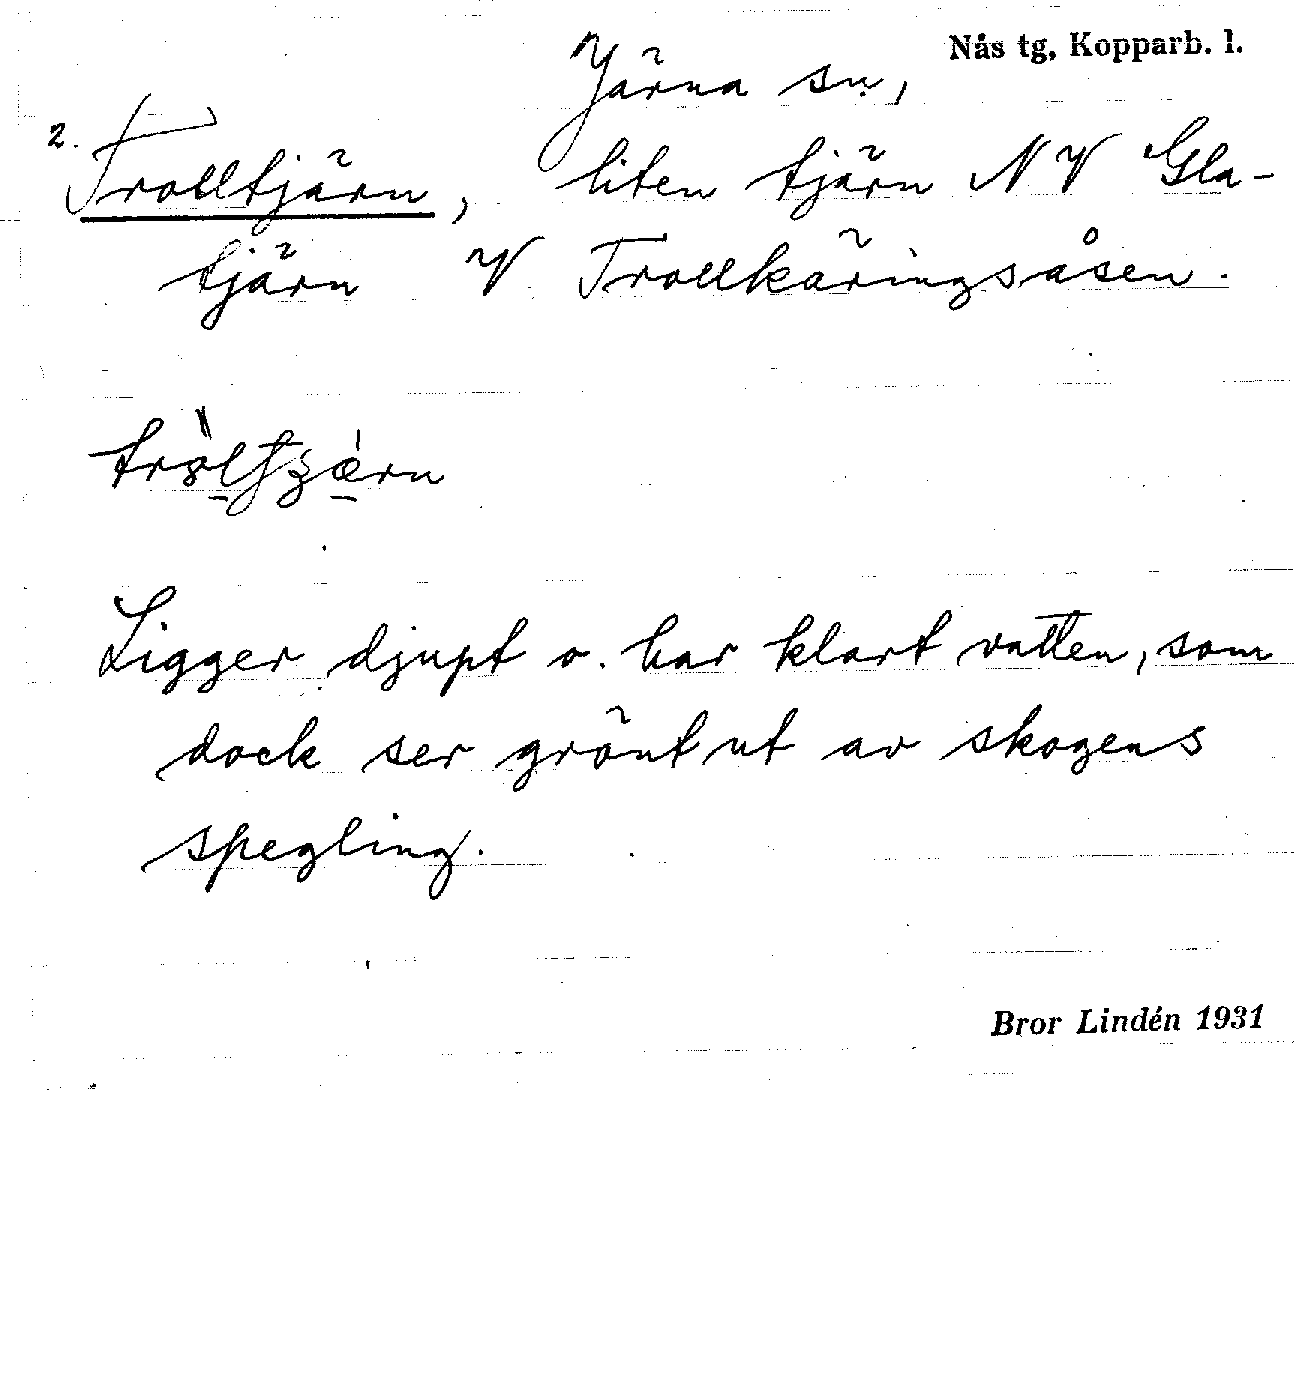 Nås tg, Kopparb. l.
Järna sn,
2. Trolltjärn, liten tjärn NV Gla-
tjärn V Trollkäringsåsen.
Ligger djupt o. har klart vatten, som
dock ser grönt ut av skogens
spegling.
Bror Lindén 1931